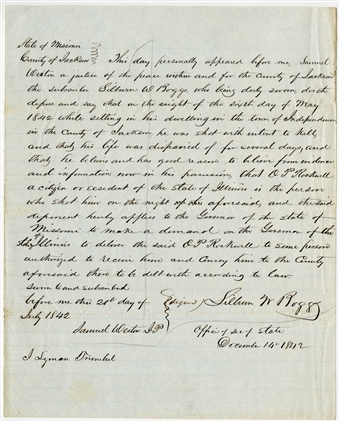 State of Missouri
County of Jackson This day personally appeared before me, Samuel
Weston a justice of the peace within and for the County of Jackson
the subscriber Lilburn W Boggs who being duly sworn, doth
depose and say that on the night of the sixth day of May
1842 while sitting in his dwelling in the town of Independence
in the County of Jackson he was shot with intent to kill
and that his life was despaired of for several days, and
that he believes and has good reason to believe from evidence
and information now in his possession, that O P Rockwell
a citizen or resident of the State of Illinois is the person
who shot him on the night aforesaid, and the said
deponent hereby applies to the Governor of the state of
Missouri to make a demand on the Governor of the
State of Illinois to deliver the said O P Rockwell to some person
authorized to receive him and convey him to the County
aforesaid there to be delt with according to law
sworn to and subscribed
before me this 20th day of (signed) Lilburn W Boggs
July 1842
Samuel Weston J P Office of Sec of State
December 14th 1842
I Lyman Trumbul